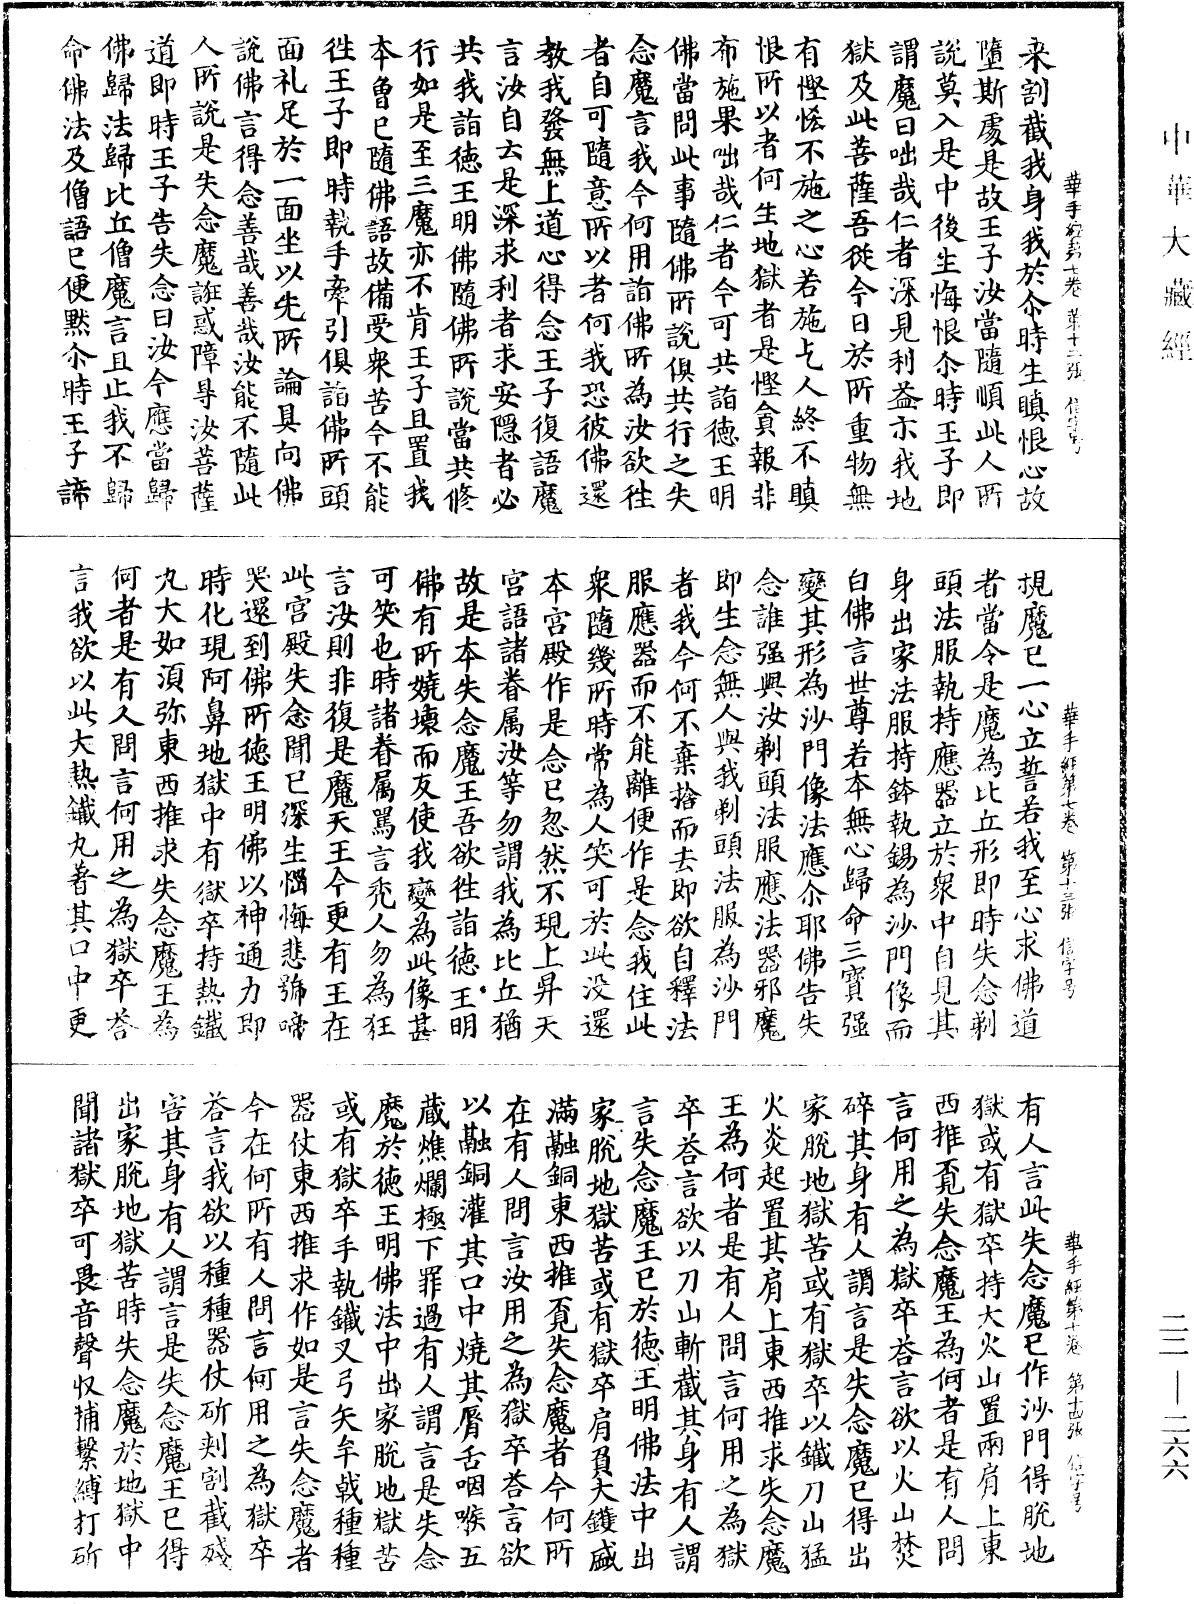 中華大藏經
華手經第七卷 第十二張 信字号
来割截我身我於尒時生瞋恨心故
墮斯處是故王子汝當隨順此人所
說莫入是中後生悔恨尒時王子即
謂魔曰咄哉仁者深見利益示我地
獄及此菩薩吾從今日於所重物無
有慳悋不施之心若施乞人終不瞋
恨所以者何生地獄者是慳貪報非
布施果咄哉仁者今可共詣德王明
佛當問此事隨佛所說俱共行之失
念魔言我今何用詣佛所為汝欲往
者自可隨意所以者何我恐彼佛還
教我發無上道心得念王子復語魔
言汝自去是深求利者求安隱者必
共我詣德王明佛隨佛所說當共脩
行如是至三魔亦不肯王子且置我
本曾已隨佛語故備受衆苦今不能
往王子即時執手牽引俱詣佛所頭
面礼足於一面坐以先所論具向佛
說佛言得念善哉善哉汝能不隨此
人所說是失念魔誑惑障㝵汝菩薩
道即時王子告失念曰汝今應當歸
佛歸法歸比丘僧魔言且止我不歸
命佛法及僧語已便默尒時王子諦
華手經第七卷 第十三張 信字号
視魔已一心立誓若我至心求佛道
者當令是魔為比丘形即時失念剃
頭法服執持應器立於衆中自見其
身出家法服持鉢執錫為沙門像而
白佛言世尊若本無心歸命三寶强
變其形為沙門像法應尒耶佛告失
念誰强與汝剃頭法服應法器邪魔
即生念無人與我剃頭法服為沙門
者我今何不棄捨而去即欲自釋法
服應器而不能離便作是念我住此
衆隨幾所時常為人笑可於此没還
本宮殿作是念已忽然不現上昇天
宮語諸眷属汝等勿謂我為比丘猶
故是本失念魔王吾欲往詣德王明
佛有所嬈壊而反使我變為此像甚
可笑也時諸眷属罵言秃人勿為狂
言汝則非復是魔天王今更有王在
此宮殿失念聞已深生惱悔悲號啼
哭還到佛所德王明佛以神通力即
時化現阿鼻地獄中有獄卒持熱鐵
丸大如湏弥東西推求失念魔王為
何者是有人問言何用之為獄卒荅
言我欲以此大熱鐵丸著其口中更
華手經第七卷 第十四張 信字号
有人言此失念魔已作沙門得脫地
獄或有獄卒持大火山置兩肩上東
西推覔失念魔王為何者是有人問
言何用之為獄卒荅言欲以火山焚
碎其身有人謂言是失念魔已得出
家脫地獄苦或有獄卒以鐵刀山猛
火炎起置其肩上東西推求失念魔
王為何者是有人問言何用之為獄
卒荅言欲以刀山斬截其身有人謂
言失念魔王已於德王明佛法中出
家脫地獄苦或有獄卒肩負大鑊盛
滿融銅東西推覔失念魔者今何所
在有人問言汝用之為獄卒荅言欲
以融銅灌其口中燒其脣舌咽喉五
藏燋爛極下罪過有人謂言是失念
魔於德王明佛法中出家脫地獄苦
或有獄卒手執鐵叉弓矢牟戟種種
器仗東西推求作如是言失念魔者
今在何所有人問言何用之為獄卒
荅言我欲以種種器仗斫剌割截殘
害其身有人謂言是失念魔王已得
出家脫地獄苦時失念魔於地獄中
聞諸獄卒可畏音聲収捕繫縛打斫
二二—二六六